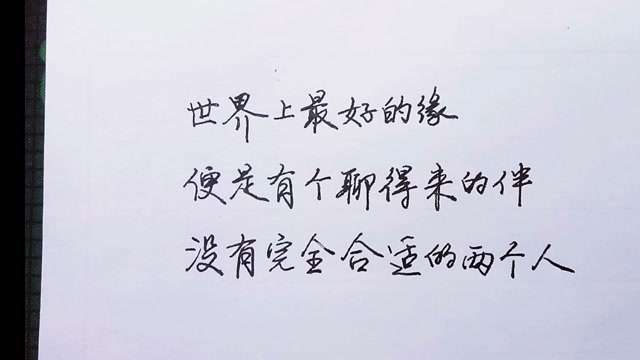 世界上最好的缘
便是有个聊得来的伴
没有完全合适的两个人